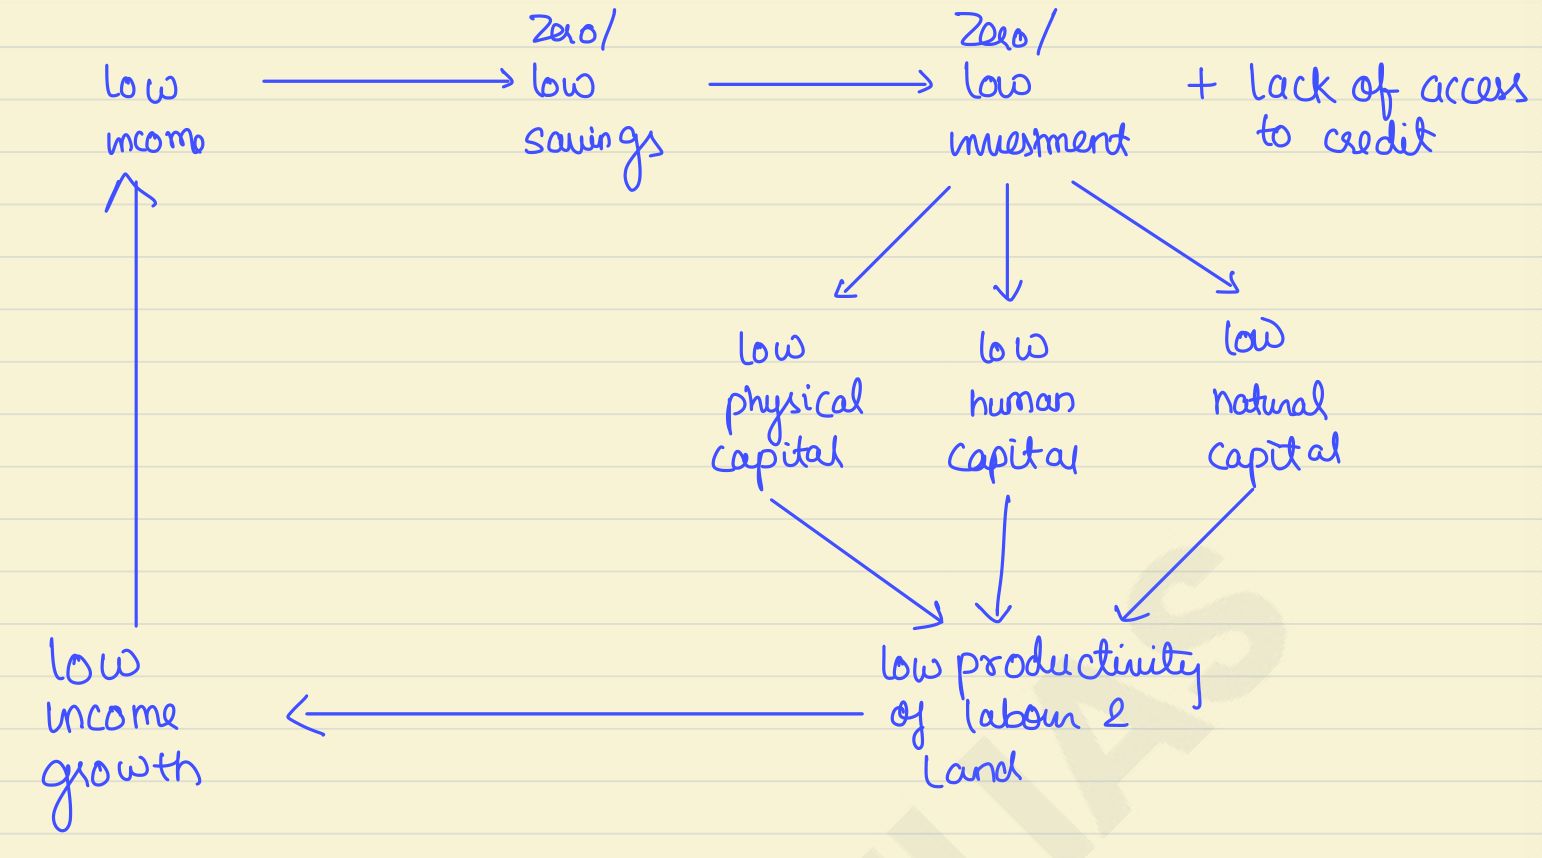 low
income
zero/
low
savings
zero/
low
investment
+ lack of access
to credit
low
physical
capital
low
human
capital
low
natural
capital
low productivity
of labour &
land
low
income
growth
IAS